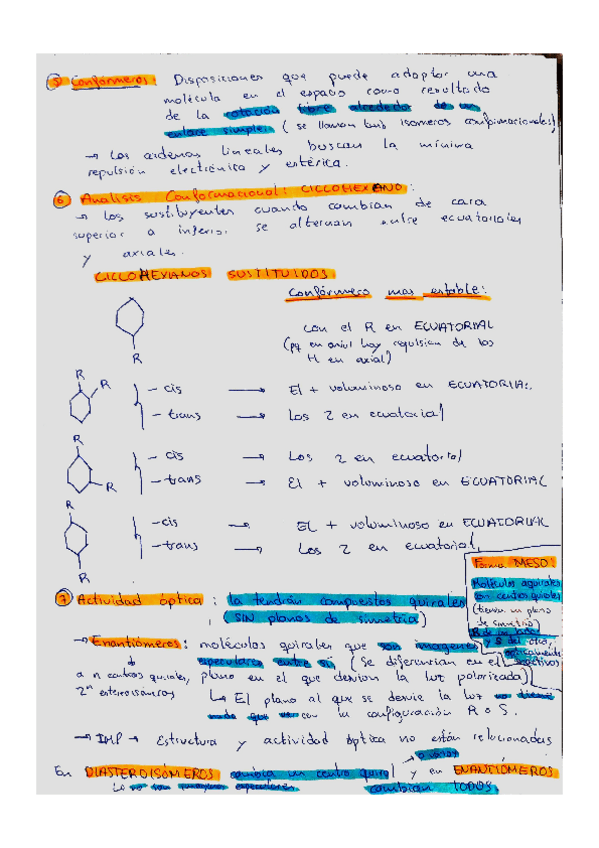 5 Confórmeros: Disposiciones que puede adoptar una
molécula en el espacio como resultado
de la rotación libre alrededor de un
enlace simple. (se llaman tmb isomeros conformacionales)
→ Las cadenas lineales buscan la mínima
repulsión electrónica y estérica.
6 Analisis Conformacional: CICLOHEXANO:
→ Los sustituyentes cuando cambian de cara
superior a inferior se alternan entre ecuatoriales
y axiales.
CICLOHEXANOS SUSTITUIDOS:
Confórmero mas estable:
R
Con el R en ECUATORIAL
(pq en axial hay repulsion de los
H en axial)
R
R
- cis → El + voluminoso en ECUATORIAL
- trans → Los 2 en ecuatorial
R
R
- cis → Los 2 en ecuatorial
- trans → El + voluminoso en ECUATORIAL
R
R
- cis → El + voluminoso en ECUATORIAL
- trans → Los 2 en ecuatorial
Forma MESO:
Moléculas aquirales
con centros quirales
(tienen un plano
de simetría)
R de un lado
y S del otro,
7 Actividad óptica: la tendrán compuestos quirales
(SIN planos de simetría)
→ Enantiómeros: moléculas quirales que son imagenes
especulares entre sí (Se diferencian en el
plano en el que desvian la luz polarizada)
a n centros quirales,
2ⁿ estereoisómeros
↳ El plano al que se desvie la luz no tiene
nada que ver con la configuración R o S.
→ IMP → Estructura y actividad óptica no están relacionadas
En DIASTEROISÓMEROS cambia un centro quiral y en ENANTIÓMEROS
Lo no son imagenes especulares
cambian TODOS